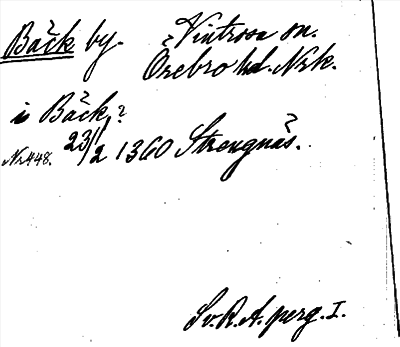 Bäck by. Vintrosa sn.
Örebro hd. Nrk.
i Bäck,?
Nr 448. 23/2 1360 Strengnäs.
Sv.R.A. perg. I.